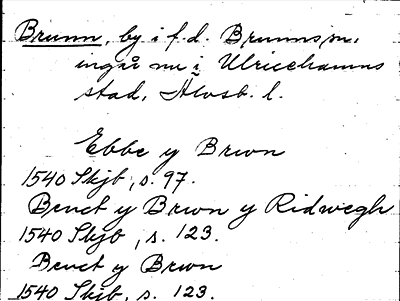 Brunn, by i f.d. Brunns sn.
ingår nu i Ulricehamns
stad, Älvsb. l.
Ebbe y Brwn
1540 Skjb, s. 97.
Benct y Brwn y Ridwegh
1540 Skjb, s. 123.
Benct y Brwn
1540 Skjb, s. 123.